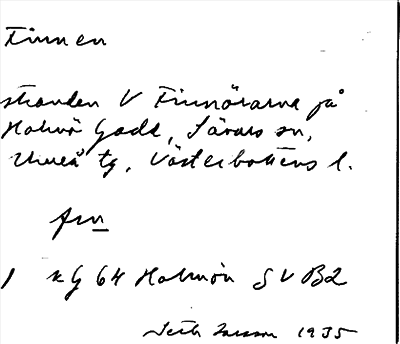 Finnen
stranden V Finnörarna på
Holmö Gadd, Sävars sn,
Umeå tg, Västerbottens l.
fın
1 kg 64 Holmön SV B2
Seth Larsson 1935